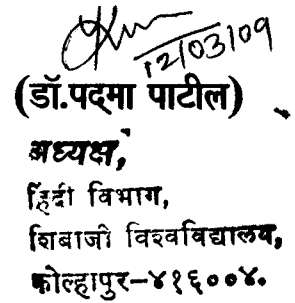 12/03/09
(डॉ.पद्मा पाटील)
अध्यक्ष,
हिंदी विभाग,
शिवाजी विश्वविद्यालय,
कोल्हापुर-४१६००४.